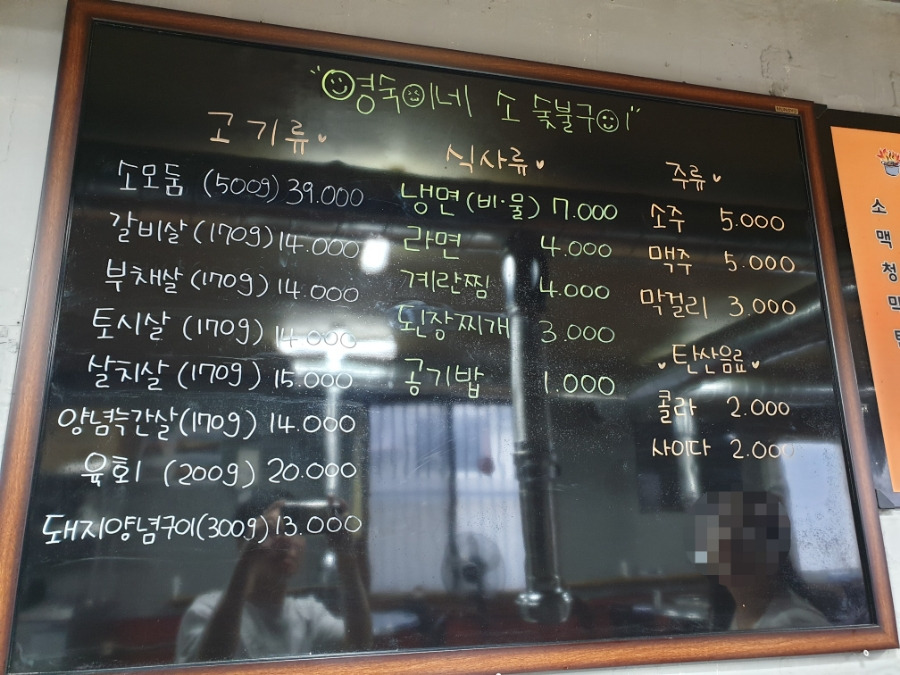 "영숙이네 소 숯불구이"
고기류
소모둠 (500g) 39.000
갈비살 (170g) 14.000
부채살 (170g) 14.000
토시살 (170g) 14.000
살치살 (170g) 15.000
양념늑간살(170g) 14.000
육회 (200g) 20.000
돼지양념구이(300g) 13.000
식사류
냉면 (비·물) 7.000
라면 4.000
계란찜 4.000
된장찌개 3.000
공기밥 1.000
주류
소주 5.000
맥주 5.000
막걸리 3.000
탄산음료
콜라 2.000
사이다 2.000
소
맥
청
막